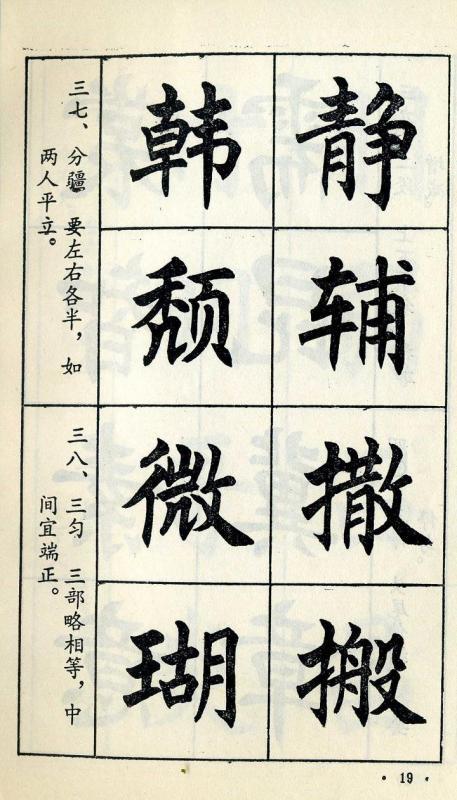 三七、分疆 要左右各半，如
两人平立。
韩静
颓辅
三八、三匀 三部略相等，中
间宜端正。
微撒
瑚搬
· 19 ·